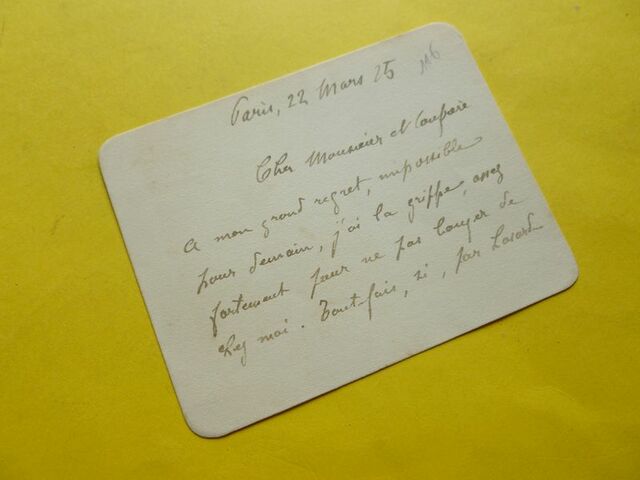 116
Paris, 22 Mars 25
Cher Monsieur et Confrère
A mon grand regret, impossible
pour demain, j'ai la grippe, assez
fortement pour ne pas bouger de
chez moi. Tout-fois, si, par hasard